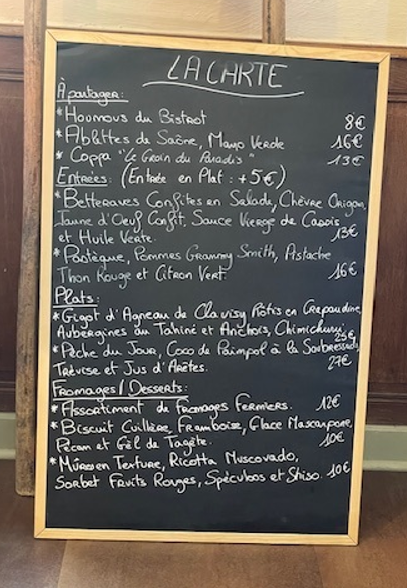 LA CARTE
À partager:
* Houmous du Bistrot 8€
* Ablettes de Saône, Mayo Verde 16€
* Coppa "Le Groin du Paradis" 13€
Entrées: (Entrée en Plat: +5€)
* Betteraves Confites en Salade, Chèvre Origan,
Jaune d'Oeuf Confit, Sauce Vierge de Cassis
et Huile Verte. 13€
* Pastèque, Pommes Granny Smith, Pistache
Thon Rouge et Citron Vert. 16€
Plats:
* Gigot d'Agneau de Clavisy Rôtis en Crapaudine,
Aubergines au Tahiné et Anchois, Chimichurri, 25€
* Pêche du Jour, Coco de Paimpol à la
Trévise et Jus d'Arêtes. 27€
Fromages / Desserts:
* Assortiment de Fromages Fermiers. 12€
* Biscuit Cuillère, Framboise, Glace Mascarpone,
Pécan et Gel de Tagète. 10€
* Mûres en Texture, Ricotta Muscovado,
Sorbet Fruits Rouges, Spéculoos et Shiso. 10€